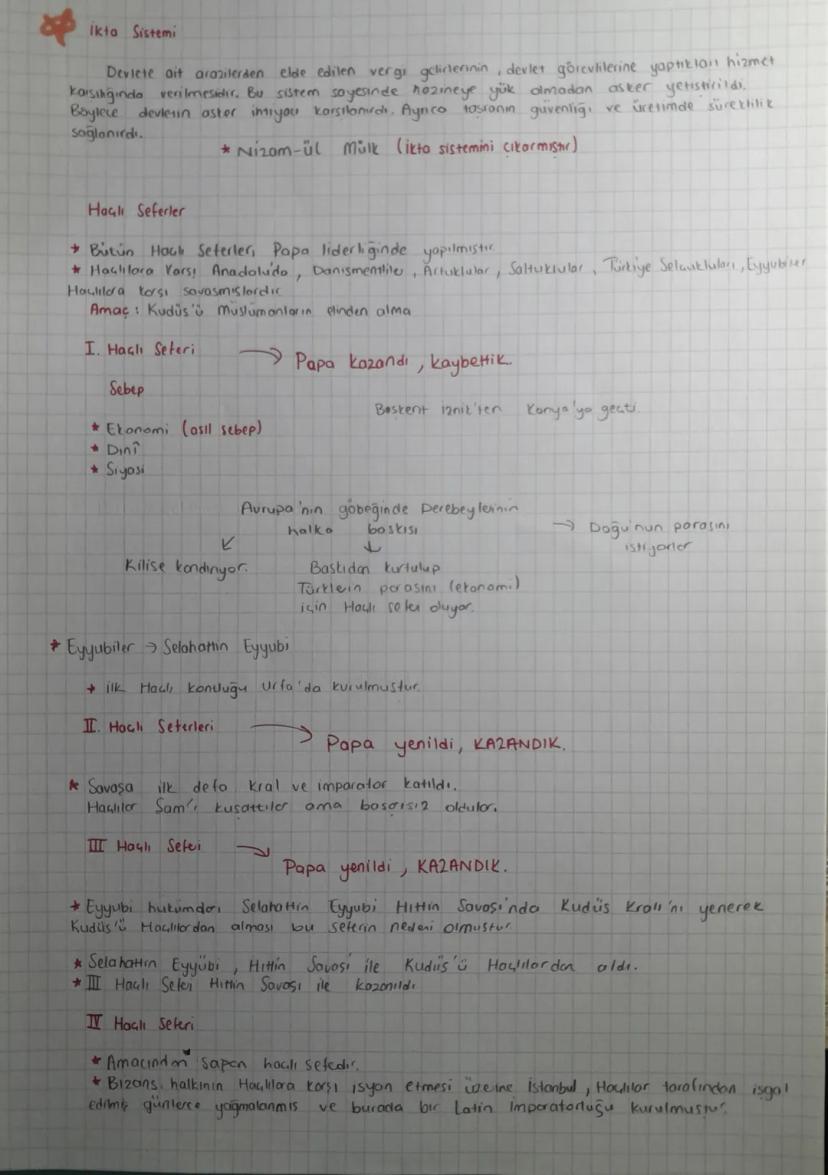 İkta Sistemi
Devlete ait arazilerden elde edilen vergi gelirlerinin, devlet görevlilerine yaptıkları hizmet
karşılığında verilmesidir. Bu sistem sayesinde hazineye yük olmadan asker yetiştirildi.
Böylece devletin asker ihtiyacı karşılanırdı. Ayrıca taşranın güvenliği ve üretimde süreklilik
sağlanırdı.
* Nizam-ül Mülk (İkta sistemini çıkarmıştır)
Haçlı Seferler
* Bütün Haçlı Seferleri Papa liderliğinde yapılmıştır.
* Haçlılara Karşı Anadolu'da, Danişmentliler, Artuklular, Saltuklular, Türkiye Selçukluları, Eyyubiler
Haçlılara karşı savaşmışlardır.
Amaç: Kudüs'ü Müslümanların elinden alma
I. Haçlı Seferi → Papa kazandı, kaybettik.
Sebep
Başkent İznik'ten Konya'ya geçti.
* Ekonomi (asıl sebep)
* Dinî
* Siyasi
Avrupa'nın göbeğinde Derebeylerinin
halka baskısı → Doğu'nun parasını
istiyorlar
Kilise kandırıyor.
Baskıdan kurtulup
Türklerin parasını (ekonomi)
için Haçlı seferi oluyor.
* Eyyubiler → Selahattin Eyyubi
* İlk Haçlı kontluğu Urfa'da kurulmuştur.
II. Haçlı Seferleri → Papa yenildi, KAZANDIK.
* Savaşa ilk defa kral ve imparator katıldı.
Haçlılar Şam'ı kuşattılar ama başarısız oldular.
III Haçlı Seferi → Papa yenildi, KAZANDIK.
* Eyyubi hükümdarı Selahattin Eyyubi Hittin Savaşı'nda Kudüs Kralı'nı yenerek
Kudüs'ü Haçlılardan alması bu seferin nedeni olmuştur.
* Selahattin Eyyübi, Hittin Savaşı ile Kudüs'ü Haçlılardan aldı.
* III Haçlı Seferi Hittin Savaşı ile kazanıldı.
IV Haçlı Seferi
* Amacından sapan haçlı seferdir.
* Bizans halkının Haçlılara karşı isyan etmesi üzerine İstanbul, Haçlılar tarafından işgal
edilmiş günlerce yağmalanmış ve burada bir Latin İmparatorluğu kurulmuştur.